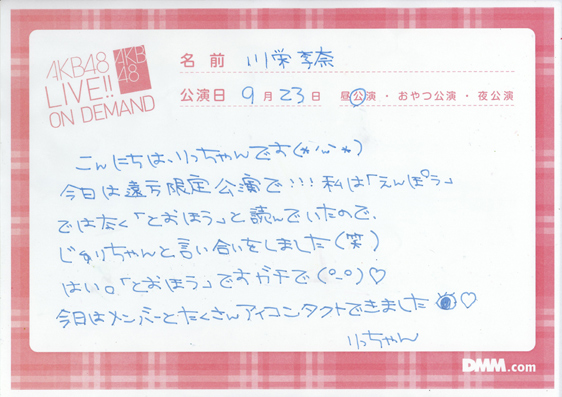 AKB48
LIVE!!
ON DEMAND
AKB
48
名前 川栄李奈
公演日 9月23日 昼公演・おやつ公演・夜公演
こんにちは、りっちゃんです(*'ω'*)
今日は遠方限定公演で!!!私は「えんぽう」
ではなく「とおほう」と読んでいたので、
じゅりちゃんと言い合いをしました(笑)
はい。「とおほう」ですガチで(°_°)♡
今日はメンバーとたくさんアイコンタクトできました♡
りっちゃん
DMM.com